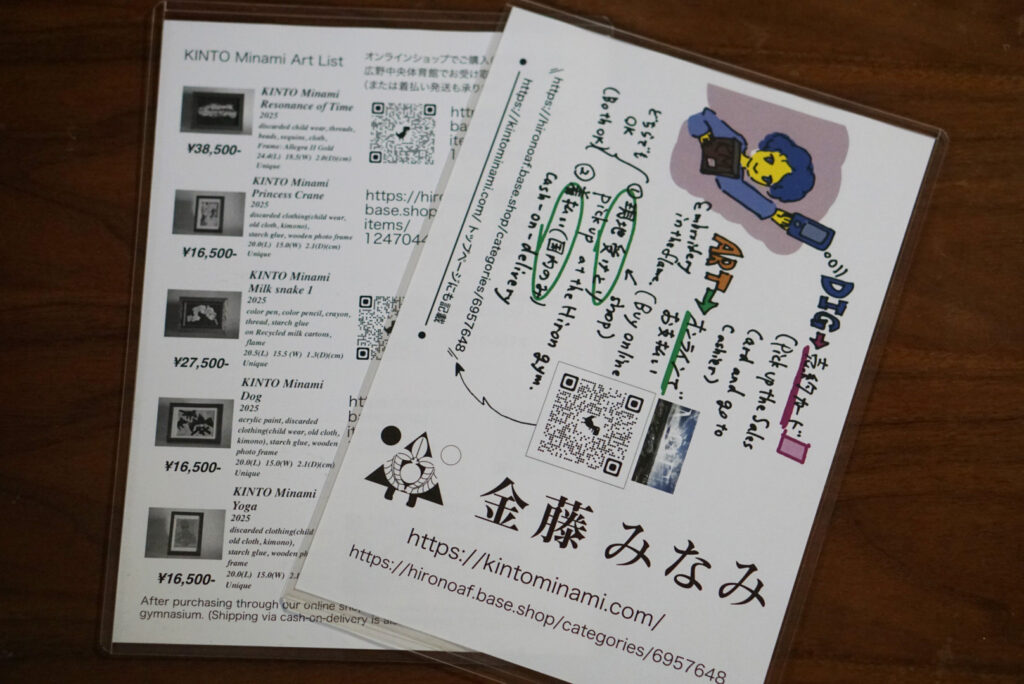 KINTO Minami Art List
オンラインショップでご購入
広野中央体育館でお受け取
(または着払い発送も承り
KINTO Minami
Resonance of Time
2025
discarded child wear, threads,
beads, sequins, cloth,
Frame: Allegra II Gold
24.4(L) 18.5(W) 2.0(D)(cm)
Unique
¥38,500-
KINTO Minami
Princess Crane
2025
discarded clothing(child wear,
old cloth, kimono),
starch glue, wooden photo frame
20.0(L) 15.0(W) 2.1(D)(cm)
Unique
¥16,500-
https://hiro
base.shop
items/
1247044
KINTO Minami
Milk snake 1
2025
color pen, color pencil, crayon,
thread, starch glue
on Recycled milk cartons,
flame
20.5(L) 15.5 (W) 1.3(D)(cm)
Unique
¥27,500-
KINTO Minami
Dog
2025
acrylic paint, discarded
clothing(child wear, old cloth,
kimono), starch glue, wooden
photo frame
20.0(L) 15.0(W) 2.1(D)(cm)
Unique
¥16,500-
KINTO Minami
Yoga
2025
discarded clothing(child
old cloth, kimono),
starch glue, wooden ph
frame
20.0(L) 15.0(W) 2.1
Unique
¥16,500-
After purchasing through our online sho
gymnasium. (Shipping via cash-on-delivery is al
DIG→売約カード
(Pick up the Sales
Card and go to
Cashier)
ART→オンラインで
お支払い
Embroidery
in the flam.
(Buy online
shop)
どちらでも
OK
(Both ok)
①現地受けとり
pick up at the Hiron gym.
②着払い(国内のみ)
Cash-on-delivery
https://hironoaf.base.shop/categories/6957648
https://kintominami.com/ トップページにも記載
金藤みなみ
https://kintominami.com/
https://hironoaf.base.shop/categories/6957648